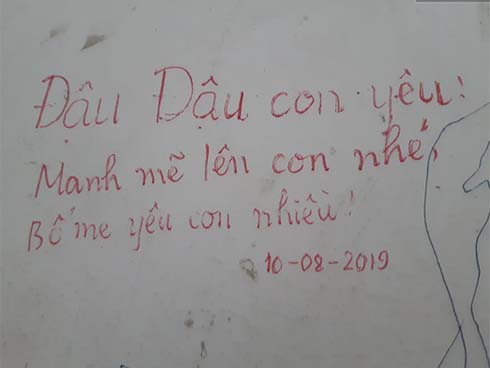 Đậu Dậu con yêu!
Mạnh mẽ lên con nhé,
Bố mẹ yêu con nhiều!
10-08-2019